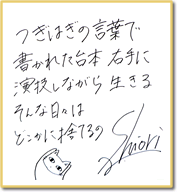 つぎはぎの言葉で
書かれた台本 右手に
演技しながら 生きる
そんな日々は
どこかに捨てるの
Shiori